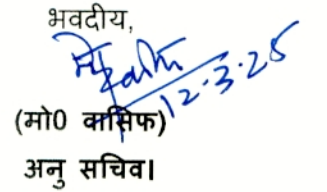 भवदीय,
12.3.25
(मो0 वासिफ)
अनु सचिव।